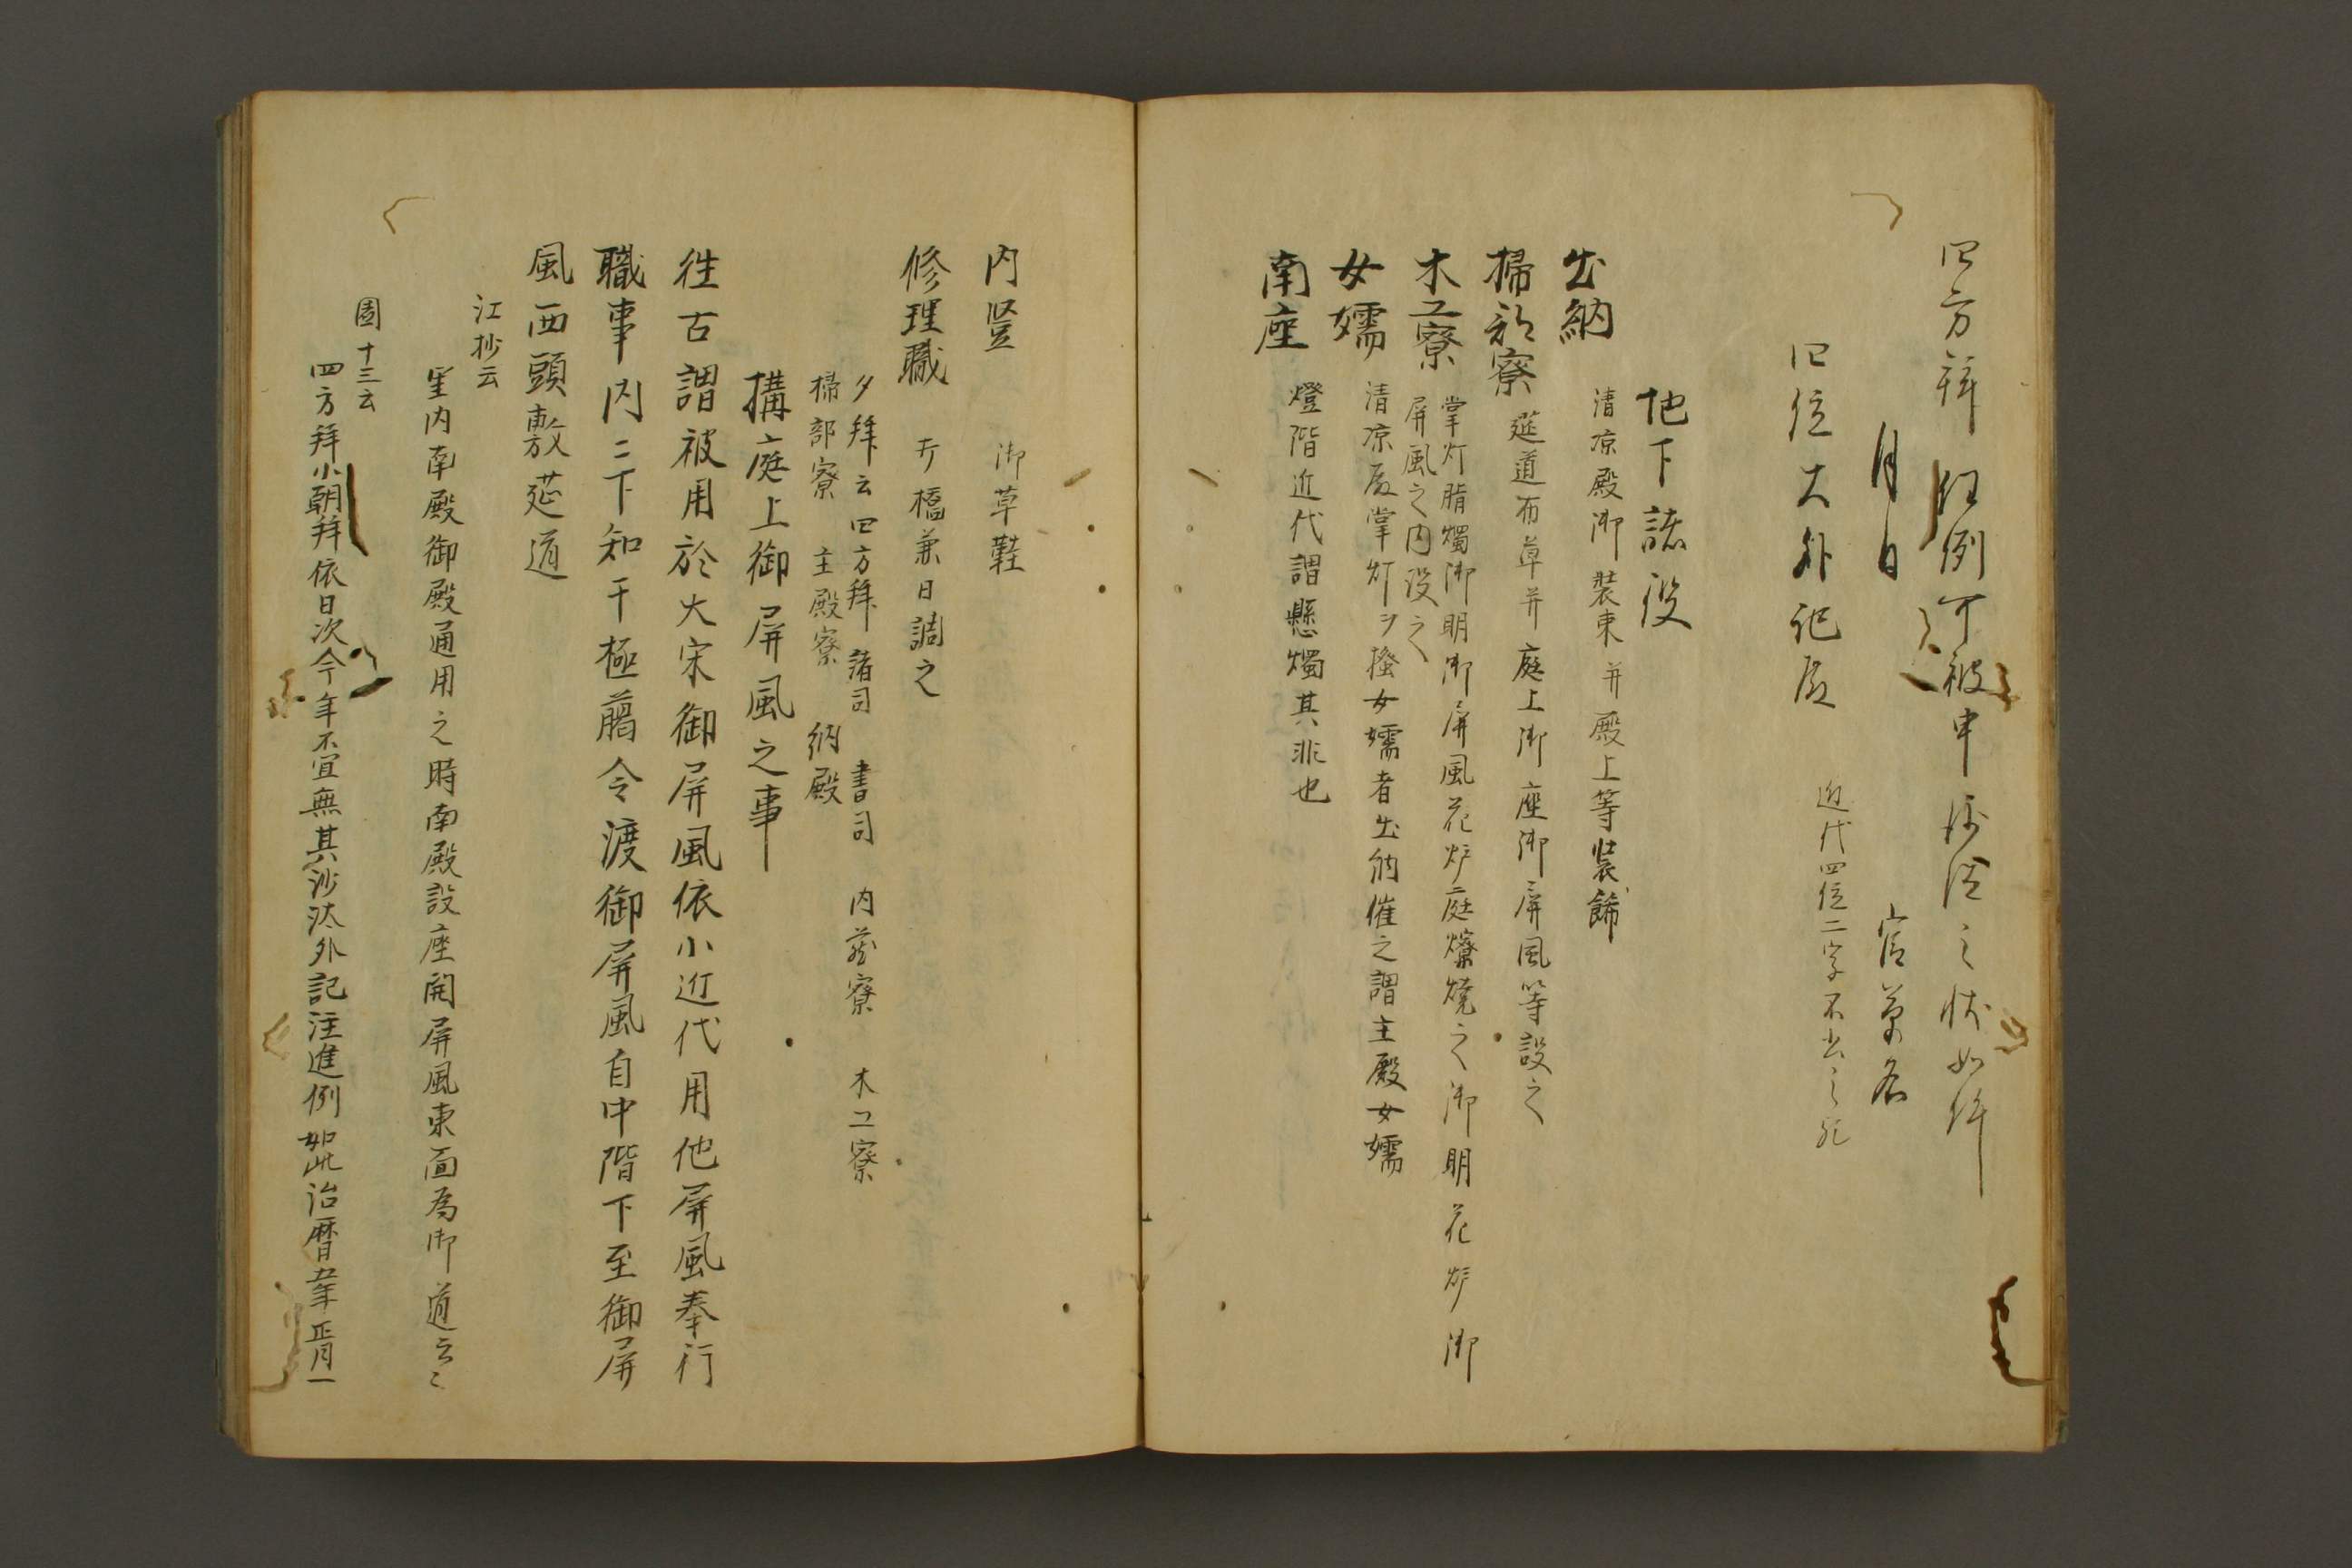 四方拝任例可被申沙汰之状如件
月日　官草名
四位大外記殿　近代四位二字不書之歟
地下諸役
出納　清凉殿御装束并殿上等装餝
掃部寮　莚道布草并庭上御座御屏風等設之
木工寮　掌灯脂燭御明御屏風花炉庭燎焼之御明花炉御
屏風之内設之
女嬬　清凉殿掌灯ヲ掻女嬬者出納催之謂主殿女嬬
南座　燈階近代謂懸燭其非也
内豎　御草鞋
修理職　打橋兼日調之
夕拝云四方拝諸司　書司　内蔵寮　木工寮
掃部寮　主殿寮　納殿
構庭上御屏風之事
往古謂被用於大宋御屏風依小近代用他屏風奉行
職事内々下知于極﨟令渡御屏風自中階下至御屏
風西頭敷莚道
江抄云
里内南殿御殿通用之時南殿設座開屏風東面為御道云々
園十三云
四方拜小朝拜依日次今年不宜無其沙汰外記注進例如此治暦五年正月一